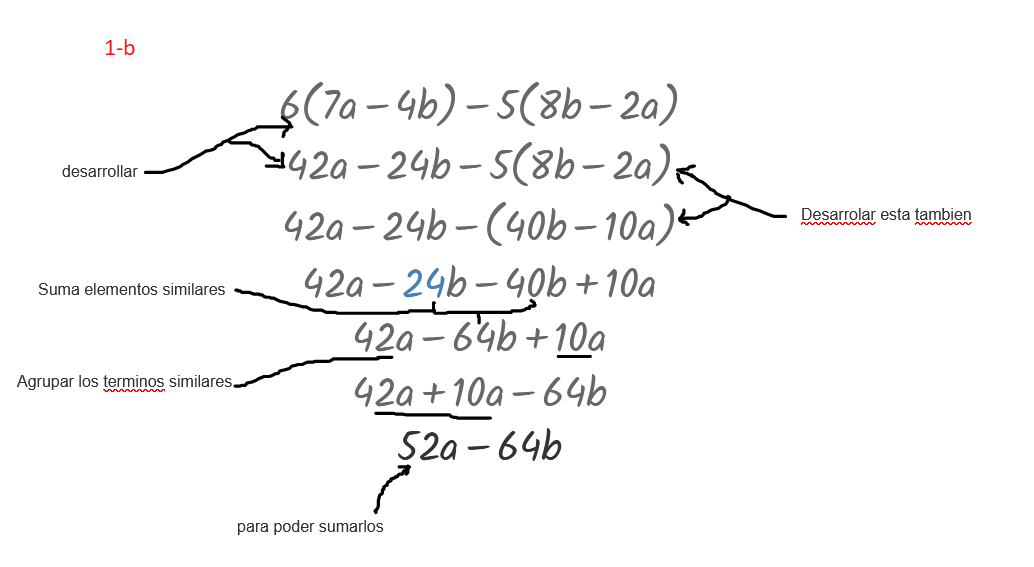 1-b
6(7a – 4b) – 5(8b – 2a)
desarrollar
42a – 24b – 5(8b – 2a)
Desarrolar esta tambien
42a – 24b – (40b – 10a)
Suma elementos similares
42a – 24b – 40b + 10a
42a – 64b + 10a
Agrupar los terminos similares
42a + 10a – 64b
52a – 64b
para poder sumarlos